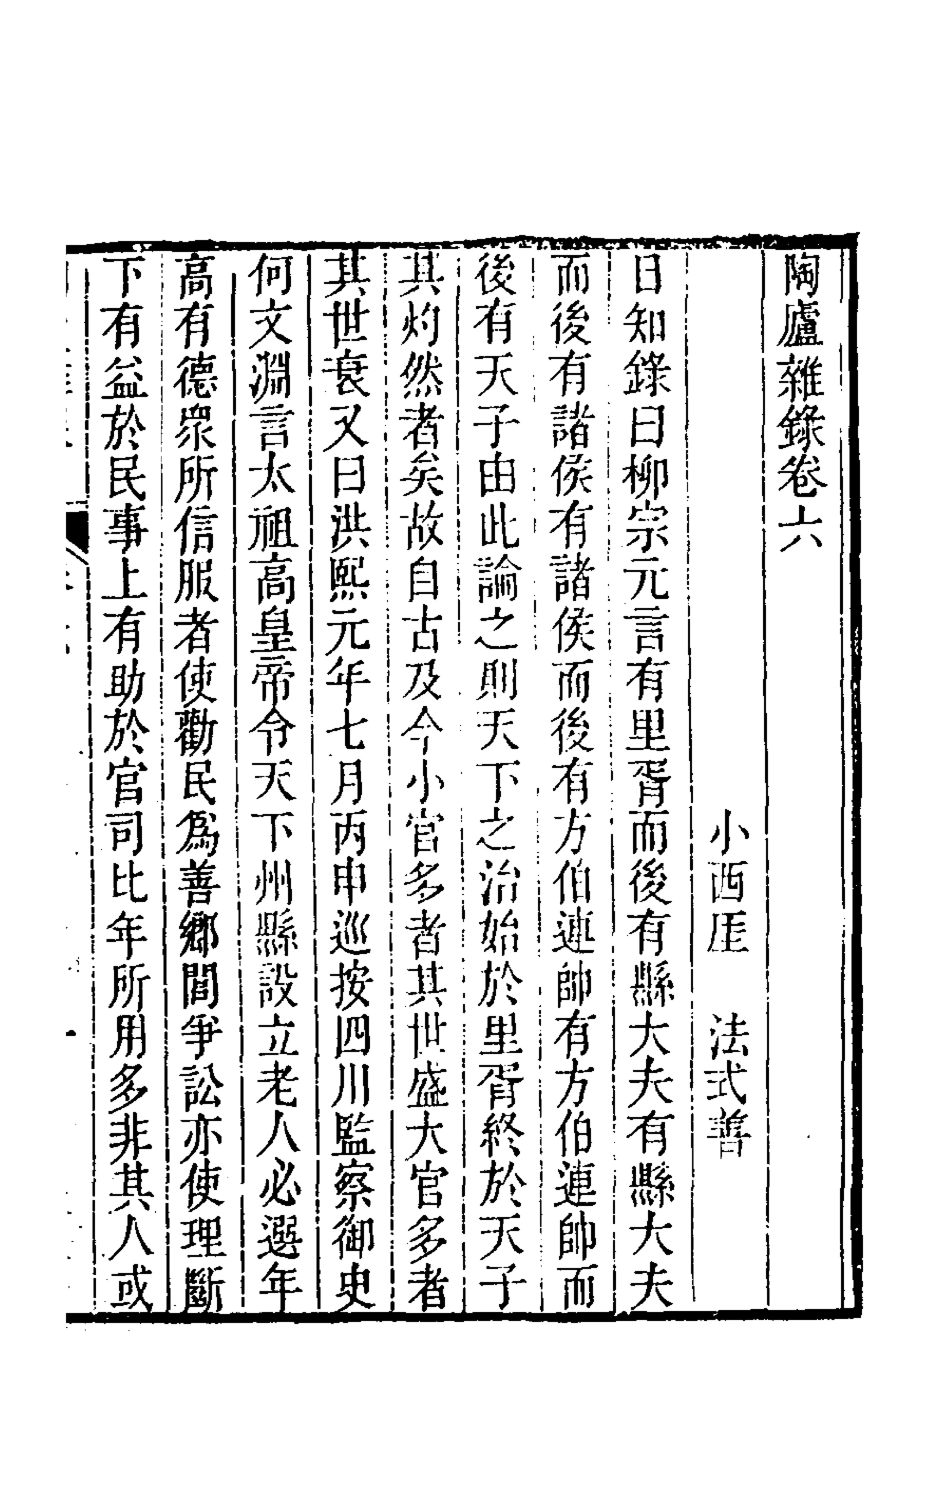 陶廬雜錄卷六
小西厓　法式善
日知錄曰柳宗元言有里胥而後有縣大夫有縣大夫
而後有諸侯有諸侯而後有方伯連帥有方伯連帥而
後有天子由此論之則天下之治始於里胥終於天子
其灼然者矣故自古及今小官多者其世盛大官多者
其世衰又曰洪熙元年七月丙申巡按四川監察御史
何文淵言太祖高皇帝令天下州縣設立老人必選年
高有德衆所信服者使勸民爲善鄉閭爭訟亦使理斷
下有益於民事上有助於官司比年所用多非其人或